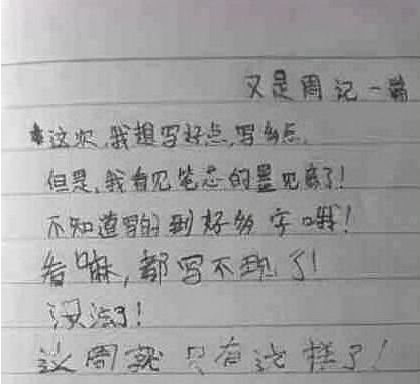 又是周记一篇
这次,我想写好点,写多点.
但是,我看见笔芯的墨见底了!
不知道写的到好多字哦!
看嘛,都写不现了!
没法了!
这周就只有这样了!